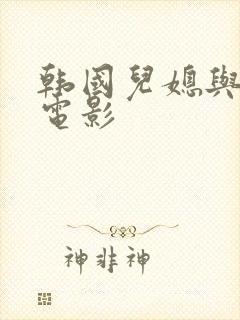 韩國兒媳與
電影
神非神